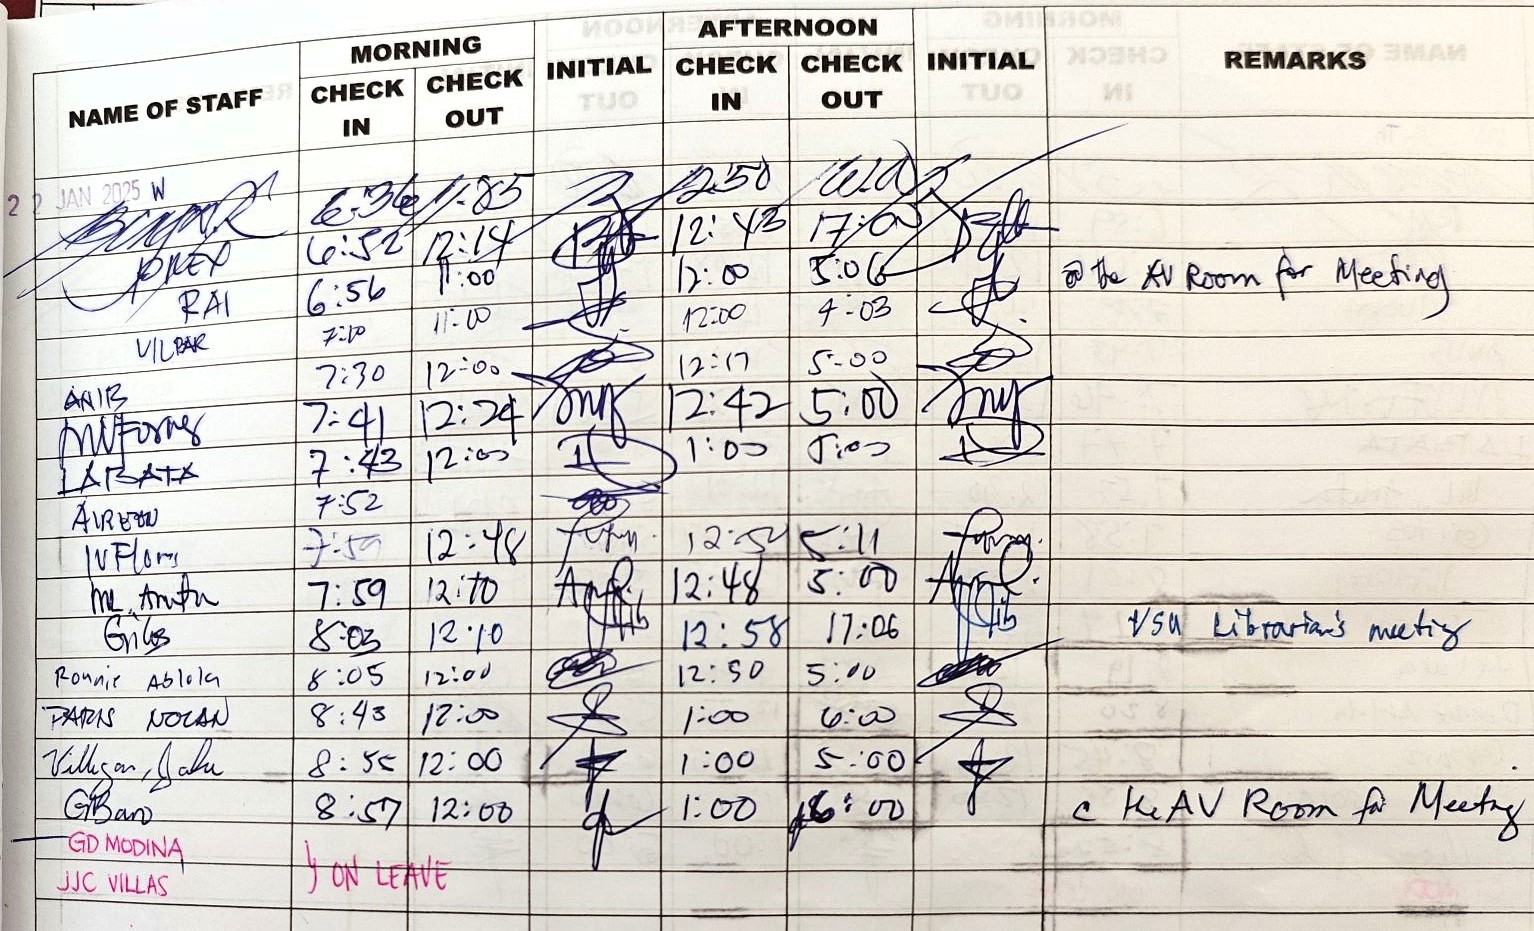 MORNING AFTERNOON
NAME OF STAFF CHECK IN CHECK OUT INITIAL CHECK IN CHECK OUT INITIAL REMARKS
22 JAN 2025 W
6:36 12:50
6:52 12:14 12:43 17:00
RAI 6:56 11:00 12:00 5:06 @ the AV Room for Meeting
VILBAR 7:10 11:00 12:00 4:03
ANIB 7:30 12:00 12:17 5:00
7:41 12:24 12:42 5:00
LABATA 7:43 12:00 1:00 5:00
7:52
7:59 12:48 5:11
7:59 12:10 12:48 5:00
Gilos 8:03 12:10 12:58 17:06 VSU Librarian's meeting
Ronnie Ablola 8:05 12:00 12:50 5:00
PARIS NOLAN 8:43 12:00 1:00 6:00
8:55 12:00 1:00 5:00
GBaro 8:57 12:00 1:00 6:00 @ the AV Room for Meeting
GD MODINA
JJC VILLAS } ON LEAVE